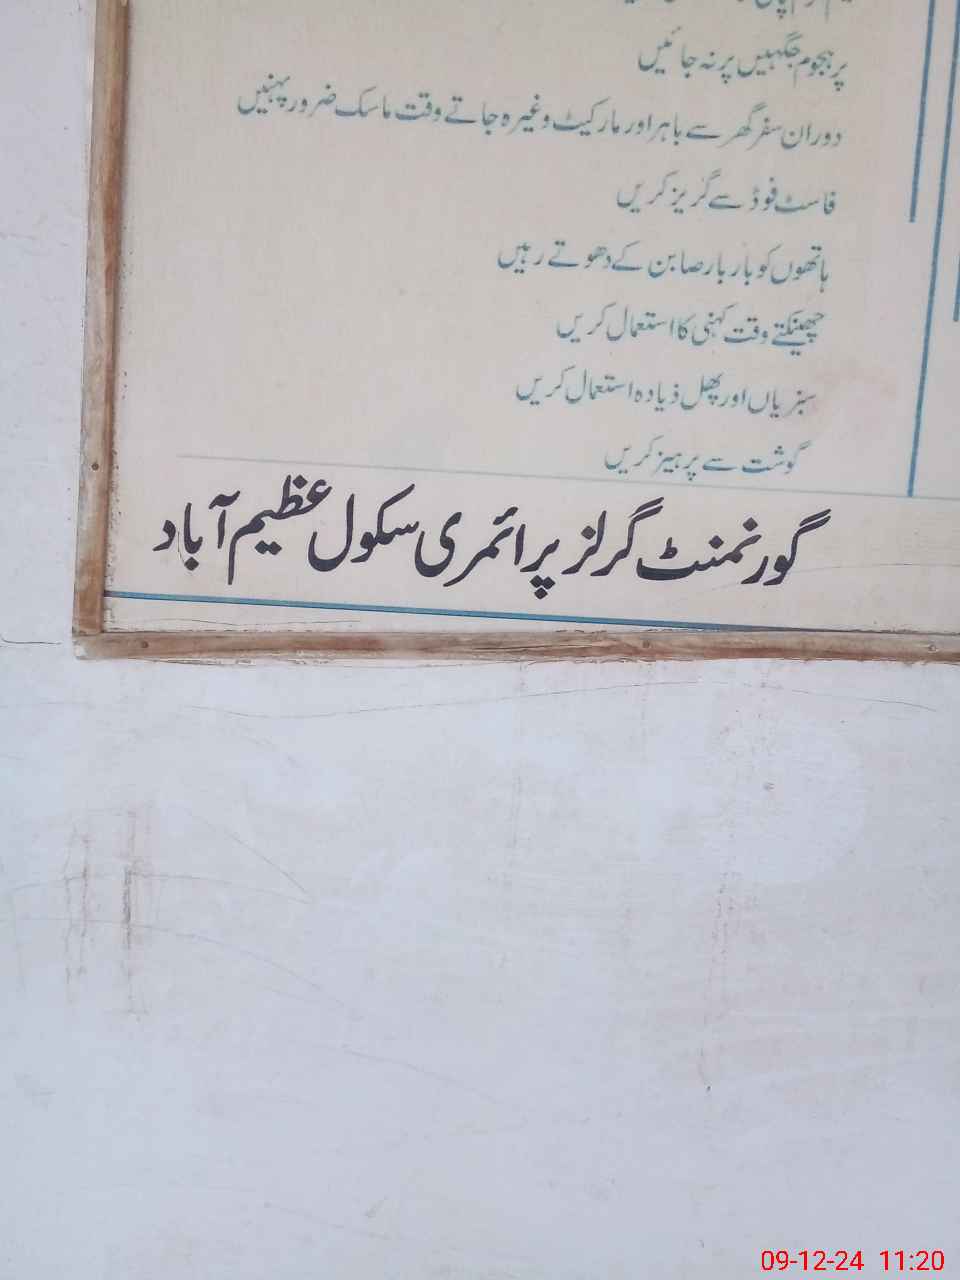 پر ہجوم جگہیں پر نہ جائیں
دوران سفر گھر سے باہر اور مارکیٹ وغیرہ جاتے وقت ماسک ضرور پہنیں
فاسٹ فوڈ سے گریز کریں
ہاتھوں کو بار بار صابن کے دھوتے رہیں
چھینکتے وقت کہنی کا استعمال کریں
سبزیاں اور پھل ذیادہ استعمال کریں
گوشت سے پرہیز کریں
گورنمنٹ گرلز پرائمری سکول عظیم آباد
09-12-24 11:20